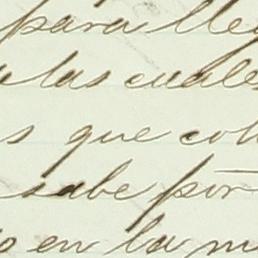 para lle
las cuales
s que col
sabe por
o en la m